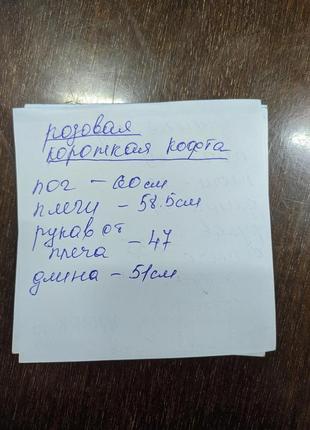 розовая
короткая кофта
пог – 60 см
плечи – 58.5см
рукав от
плеча – 47
длина – 51см